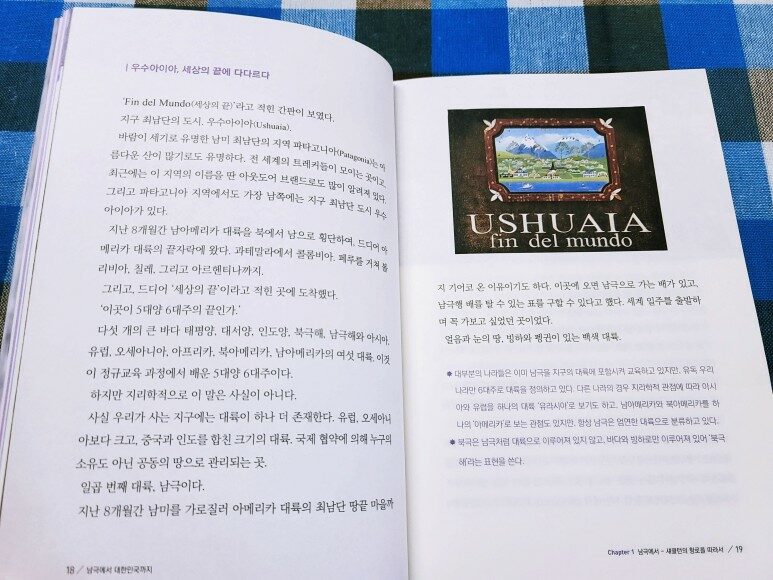 우수아이아, 세상의 끝에 다다르다
'Fin del Mundo(세상의 끝)'라고 적힌 간판이 보였다.
지구 최남단의 도시, 우수아이아(Ushuaia).
바람이 세기로 유명한 남미 최남단의 지역 파타고니아(Patagonia)는 아
름다운 산이 많기로도 유명하다. 전 세계의 트레커들이 모이는 곳이고,
최근에는 이 지역의 이름을 딴 아웃도어 브랜드로도 많이 알려져 있다.
그리고 파타고니아 지역에서도 가장 남쪽에는 지구 최남단 도시 우수
아이아가 있다.
지난 8개월간 남아메리카 대륙을 북에서 남으로 횡단하여, 드디어 아
메리카 대륙의 끝자락에 왔다. 과테말라에서 콜롬비아. 페루를 거쳐 볼
리비아, 칠레, 그리고 아르헨티나까지.
그리고, 드디어 '세상의 끝'이라고 적힌 곳에 도착했다.
'이곳이 5대양 6대주의 끝인가.'
다섯 개의 큰 바다 태평양, 대서양, 인도양, 북극해, 남극해와 아시아,
유럽, 오세아니아, 아프리카, 북아메리카, 남아메리카의 여섯 대륙. 이것
이 정규교육 과정에서 배운 5대양 6대주이다.
하지만 지리학적으로 이 말은 사실이 아니다.
사실 우리가 사는 지구에는 대륙이 하나 더 존재한다. 유럽, 오세아니
아보다 크고, 중국과 인도를 합친 크기의 대륙. 국제 협약에 의해 누구의
소유도 아닌 공동의 땅으로 관리되는 곳.
일곱 번째 대륙, 남극이다.
지난 8개월간 남미를 가로질러 아메리카 대륙의 최남단 땅끝 마을까
18 / 남극에서 대한민국까지
USHUAIA
fin del mundo
지 기어코 온 이유이기도 하다. 이곳에 오면 남극으로 가는 배가 있고,
남극행 배를 탈 수 있는 표를 구할 수 있다고 했다. 세계 일주를 출발하
며 꼭 가보고 싶었던 곳이었다.
얼음과 눈의 땅, 빙하와 펭귄이 있는 백색 대륙.
* 대부분의 나라들은 이미 남극을 지구의 대륙에 포함시켜 교육하고 있지만, 유독 우리
나라만 6대주로 대륙을 정의하고 있다. 다른 나라의 경우 지리학적 관점에 따라 아시
아와 유럽을 하나의 대륙 '유라시아'로 보기도 하고, 남아메리카와 북아메리카를 하
나의 '아메리카'로 보는 관점도 있지만, 항상 남극은 엄연한 대륙으로 분류하고 있다.
* 북극은 남극처럼 대륙으로 이루어져 있지 않고, 바다와 빙하로만 이루어져 있어 '북극
해'라는 표현을 쓴다.
Chapter 1 남극에서 - 섀클턴의 항로를 따라서 / 19